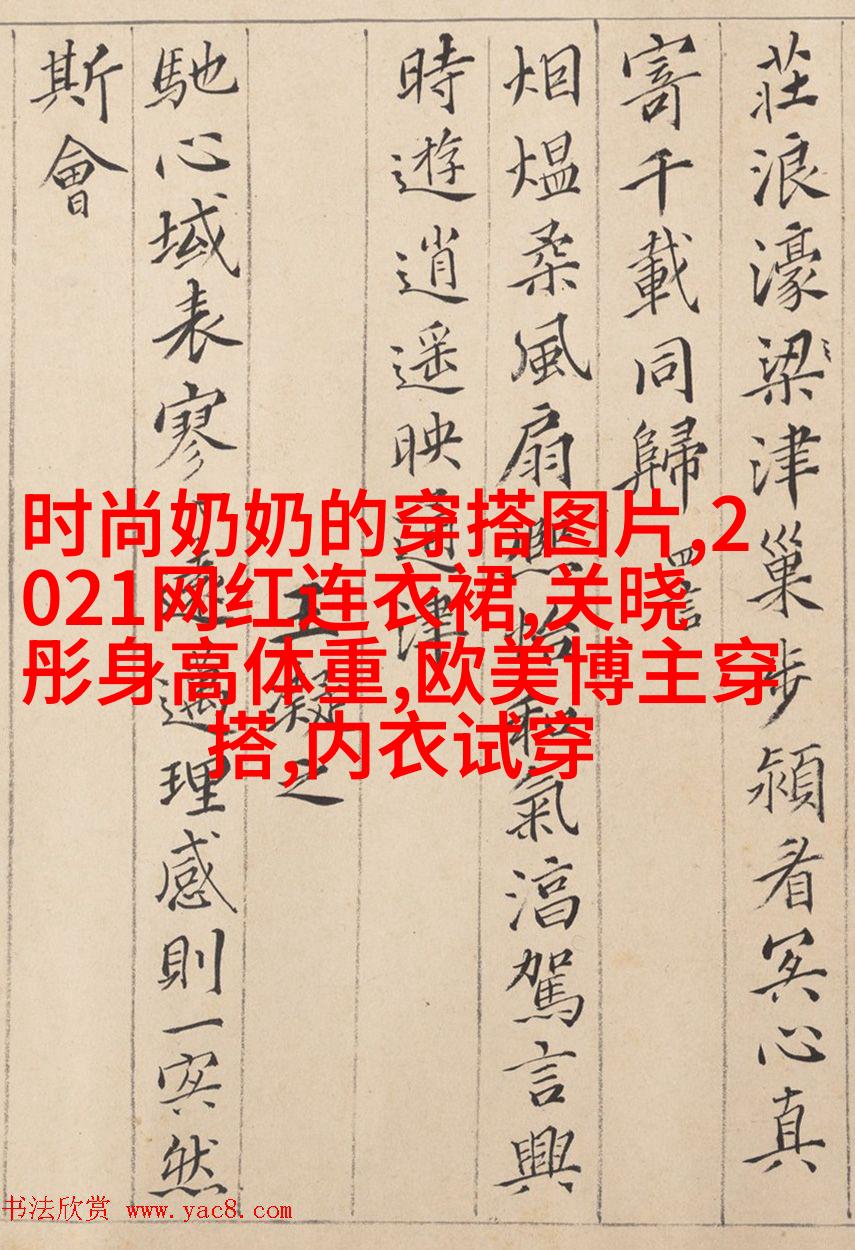 莊浪濠梁津巢步潁眉冥心真
寄千載同歸 四言
烟熅柔風扇熙怡和氣淳駕言興
時遊逍遥映通津
王凝之
馳心域表寥遠邁理感則一冥然
斯會
时尚奶奶的穿搭图片,2
021网红连衣裙,关晓
彤身高体重,欧美博主穿
搭,内衣试穿
书法欣赏 www.yac8.com